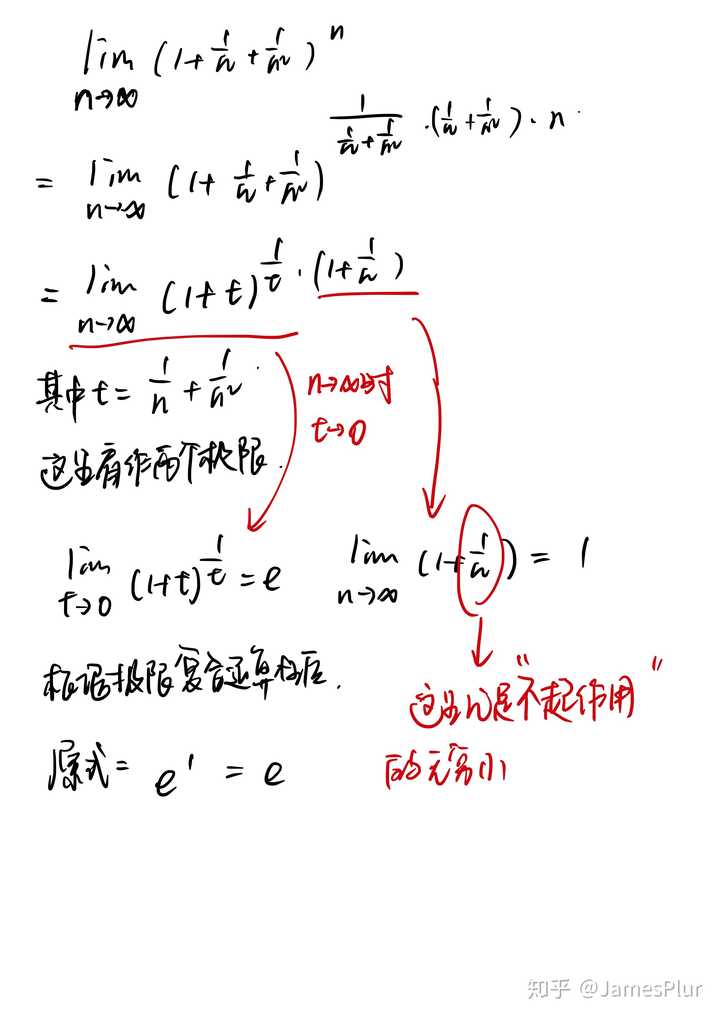 lim n→∞ (1+1/n+1/n²)^n
= lim n→∞ (1+1/n+1/n²)^{1/(1/n+1/n²)·(1/n+1/n²)·n}
= lim n→∞ (1+t)^{1/t·(1+1/n)}
其中t=1/n+1/n²
n→∞时
t→0
这里有作两个极限.
lim t→0 (1+t)^{1/t}=e
lim n→∞ (1+1/n)=1
根据极限复合运算法则.
这里1/n是“不起作用”
的无穷小
原式=e^1=e
知乎 @JamesPlur